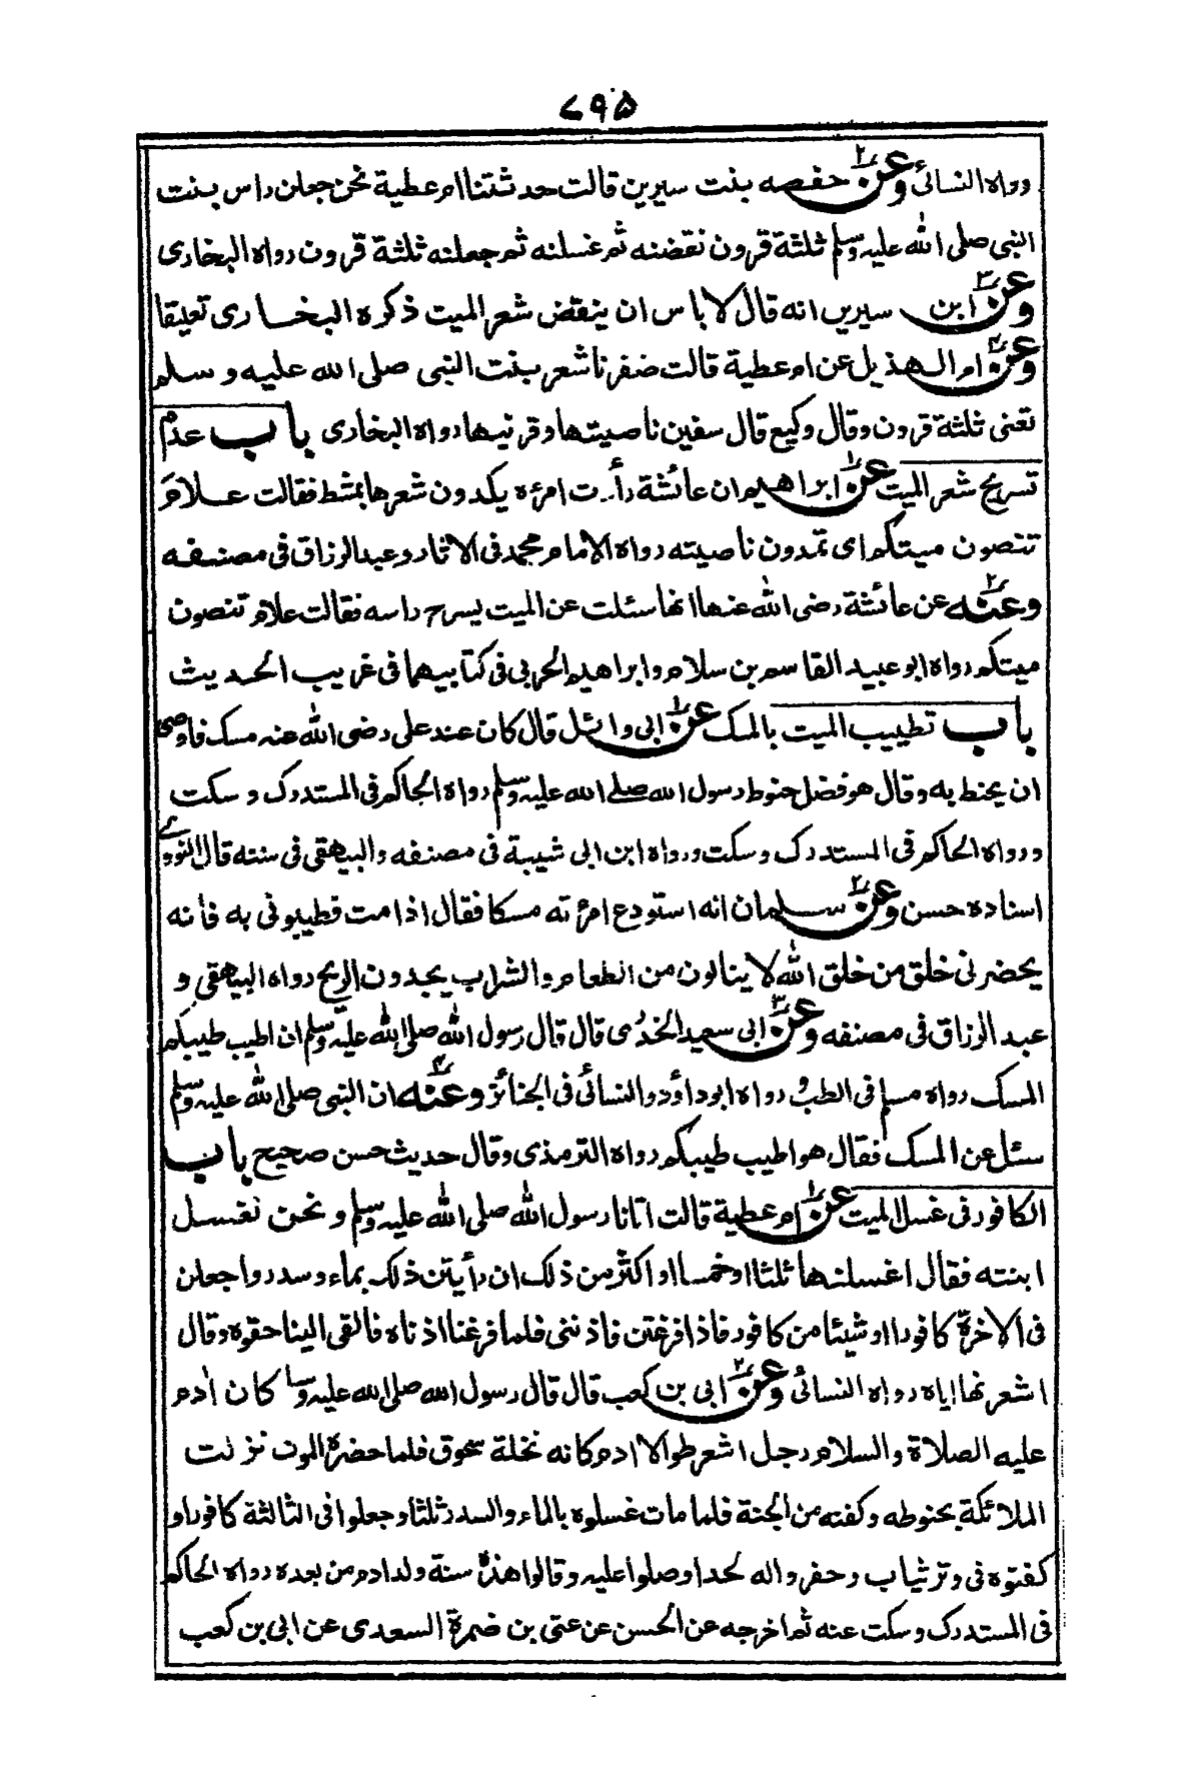 ٧٩۵
رواه النسائى وعن٢ حفصه بنت سيرين قالت حدثتنا ام عطية نحن جعلن راس بنت
النبى صلى الله عليه وسلم ثلثة قرون نقضنه ثم غسلنه ثم جعلنه ثلثة قرون رواه البخارى
وعن٣ ابن سيرين انه قال لا باس ان ينقض شعر الميت ذكره البخارى تعليقا
وعن٤ ام الهذيل عن ام عطية قالت ضفرنا شعر بنت النبى صلى الله عليه وسلم
تعنى ثلثة قرون وقال وكيع قال سفين ناصيتها وقرنيها رواه البخارى باب عدم
تسريح شعر الميت عن١ ابراهيم ان عائشة رأت امرءة يكدون شعرها بمشط فقالت علام
تنصون ميتكم اى تمدون ناصيته رواه الامام محمد فى الاثار وعبد الرزاق فى مصنفه
وعنه٢ عن عائشة رضى الله عنها انها سئلت عن الميت يسرح راسه فقالت علام تنصون
ميتكم رواه ابو عبيد القاسم بن سلام وابراهيم الحربى فى كتابيهما فى غريب الحديث
باب تطييب الميت بالمسك عن١ ابى وائل قال كان عند على رضى الله عنه مسك فاوصى
ان يحنط به وقال هو فضل حنوط رسول الله صلے الله عليه وسلم رواه الحاكم فى المستدرك وسكت
ورواه الحاكم فى المستدرك وسكت ورواه ابن ابى شيبة فى مصنفه والبيهقى فى سننه قال النووے
اسناده حسن وعن٢ سلمان انه استودع امرءته مسكا فقال اذا مت فطيبونى به فانه
يحضرنى خلق من خلق الله لا ينالون من الطعام والشراب يجدون الريح رواه البيهقى و
عبد الرزاق فى مصنفه وعن٣ ابى سعيد الخدرى قال قال رسول الله صلى الله عليه وسلم ان اطيب طيبكم
المسك رواه مسلم فى الطب ورواه ابو داؤد والنسائى فى الجنائز وعنه٤ ان النبى صلى الله عليه وسلم
سئل عن المسك فقال هو اطيب طيبكم رواه الترمذى وقال حديث حسن صحيح باب
الكافور فى غسل الميت عن١ ام عطية قالت اتانا رسول الله صلى الله عليه وسلم ونحن نغسل
ابنته فقال اغسلنها ثلثا او خمسا او اكثر من ذلك ان رأيتن ذلك بماء وسدر واجعلن
فى الاخرة كافورا او شيئا من كافور فاذا فرغتن فاذننى فلما فرغنا اذناه فالقى الينا حقوه وقال
اشعرنها اياه رواه النسائى وعن٢ ابى بن كعب قال قال رسول الله صلى الله عليه وسلم كان ادم
عليه الصلاة والسلام رجل اشعر طوالا ادم كانه نخلة سحوق فلما حضره الموت نزلت
الملائكة بحنوطه وكفنه من الجنة فلما مات غسلوه بالماء والسدر ثلثا وجعلوا فى الثالثة كافورا و
كفنوه فى وتر ثياب وحفروا له لحدا وصلوا عليه وقالوا هذه سنة ولد ادم من بعده رواه الحاكم
فى المستدرك وسكت عنه ثم اخرجه عن الحسن عن عتى بن ضمرة السعدى عن ابى بن كعب